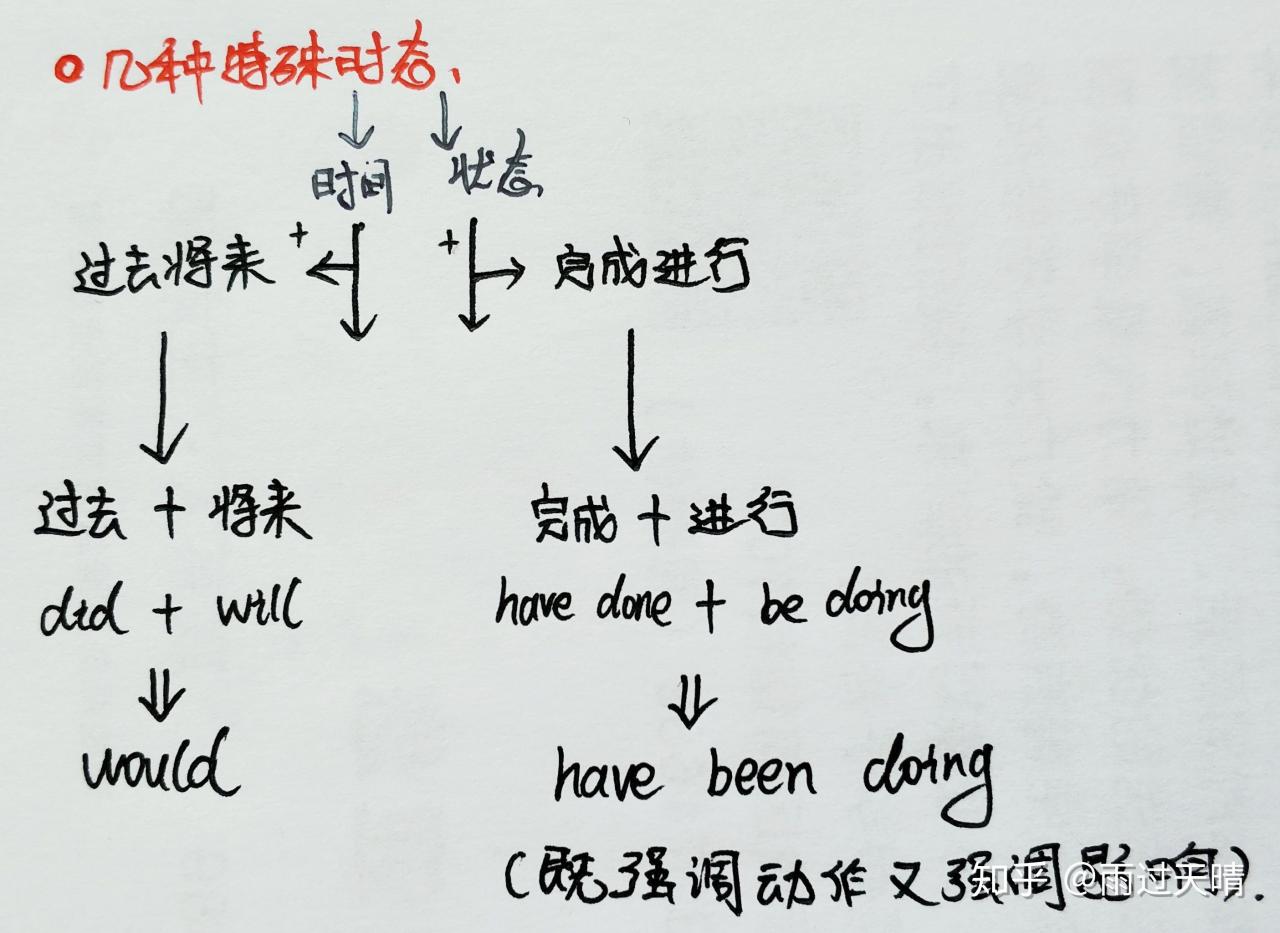 几种特殊时态、
时间 状态
过去将来 + + 完成进行
过去 + 将来 完成 + 进行
did + will have done + be doing
would have been doing
(既强调动作又强调影响).
知乎 @雨过天晴